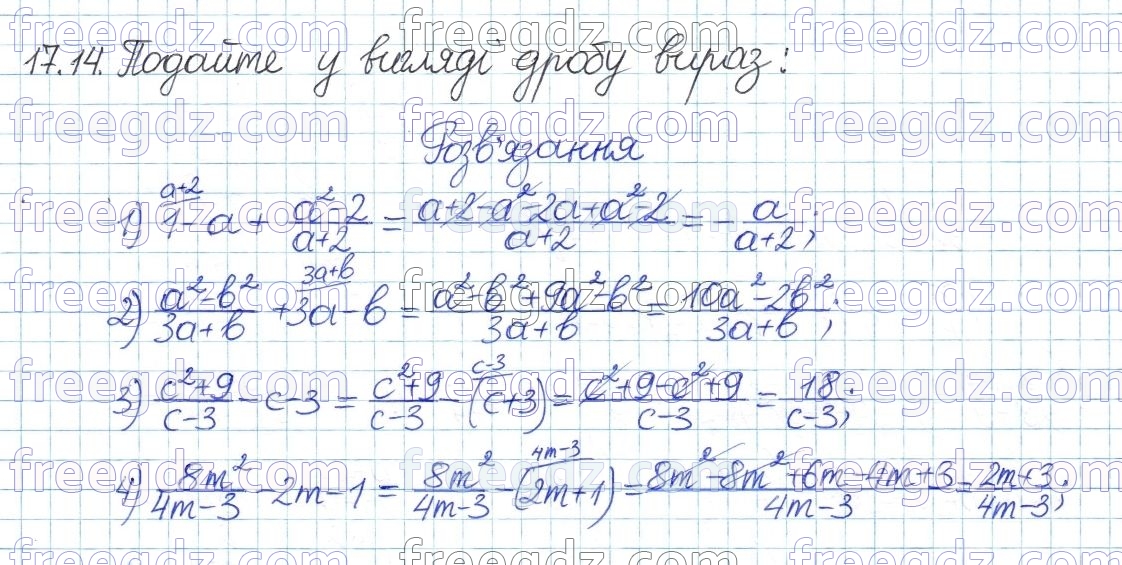 17.14. Подайте у вигляді дробу вираз:
Розв'язання
1) 1 - a + (a² - 2)/(a+2) = (a+2-a²-2a+a²-2)/(a+2) = - a/(a+2);
2) (a²-b²)/(3a+b) + 3a - b = (a²-b²+9a²-b²)/(3a+b) = (10a²-2b²)/(3a+b);
3) (c²+9)/(c-3) - c - 3 = (c²+9)/(c-3) - (c+3) = (c²+9-c²+9)/(c-3) = 18/(c-3);
4) 8m²/(4m-3) - 2m - 1 = 8m²/(4m-3) - (2m+1) = (8m²-8m²+6m-4m+3)/(4m-3) = (2m+3)/(4m-3);